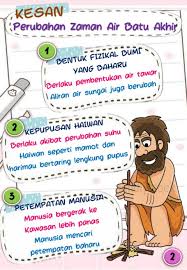 KESAN
Perubahan Zaman Air Batu Akhir
1
BENTUK FIZIKAL BUMI
YANG BAHARU
Berlaku pembentukan air tawar
Aliran air sungai juga berubah
2
KEPUPUSAN HAIWAN
Berlaku akibat perubahan suhu
Haiwan seperti mamot dan
harimau bertaring lengkung pupus
3
PETEMPATAN MANUSIA
Manusia bergerak ke
Kawasan lebih panas
Manusia mencari
petempatan baharu
2